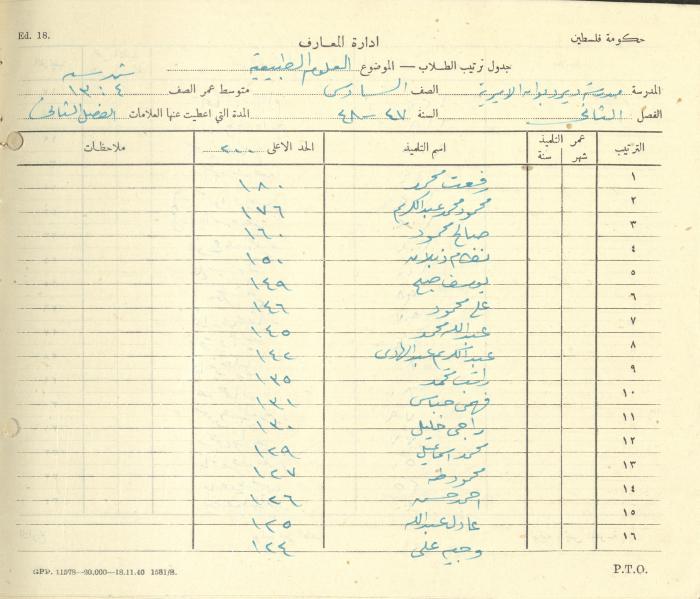 Ed. 18.
حكومة فلسطين
ادارة المعارف
جدول ترتيب الطلاب — الموضوع العلوم الطبيعية
المدرسة مدرسة ديرديوان الاميرية الصف السادس متوسط عمر الصف ١٣:٤
الفصل الثاني السنة ٤٧-٤٨ المدة التي اعطيت عنها العلامات الفصل الثاني
الترتيب عمر التلميذ سنة شهر اسم التلميذ الحد الاعلى ٢٠٠ ملاحظات
١ رفعت محمد ١٨٠
٢ محمود محمد عبدالكريم ١٧٦
٣ صالح محمود ١٦٠
٤ نظام ١٥٠
٥ يوسف صبح ١٤٩
٦ علي محمود ١٤٦
٧ عبدالله محمد ١٤٥
٨ عبدالكريم عبدالهادي ١٤٢
٩ راتب محمد ١٣٥
١٠ فهمي عباس ١٣١
١١ راجي خليل ١٣٠
١٢ محمد اسماعيل ١٢٩
١٣ محمود طه ١٢٧
١٤ احمد حسن ١٢٦
١٥ عادل عبدالله ١٢٥
١٦ وجيه علي ١٢٤
GPP. 11578—20,000—18.11.40 1581/8.
P.T.O.